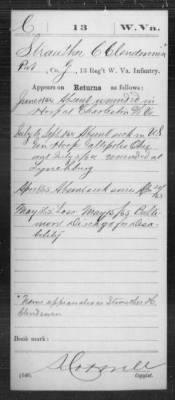 C | 13 | W. Va.
Strauther C Clendennin*
Pvt, Co. J, 13 Reg't W. Va. Infantry.
Appears on Returns as follows:
June 1864 Absent wounded in
Hosp at Charleston W Va.
July & Sept 1864 Absent sick in US
Gen Hosp Gallipolis Ohio
June 1864 wounded at
Lynchburg
Absent sick since
May 1865 Loss May 1865 Balti
more discharge for disa-
bility
*Name appears also as Strauther H.
Clendenen
Book mark:
(546)
Copyist.